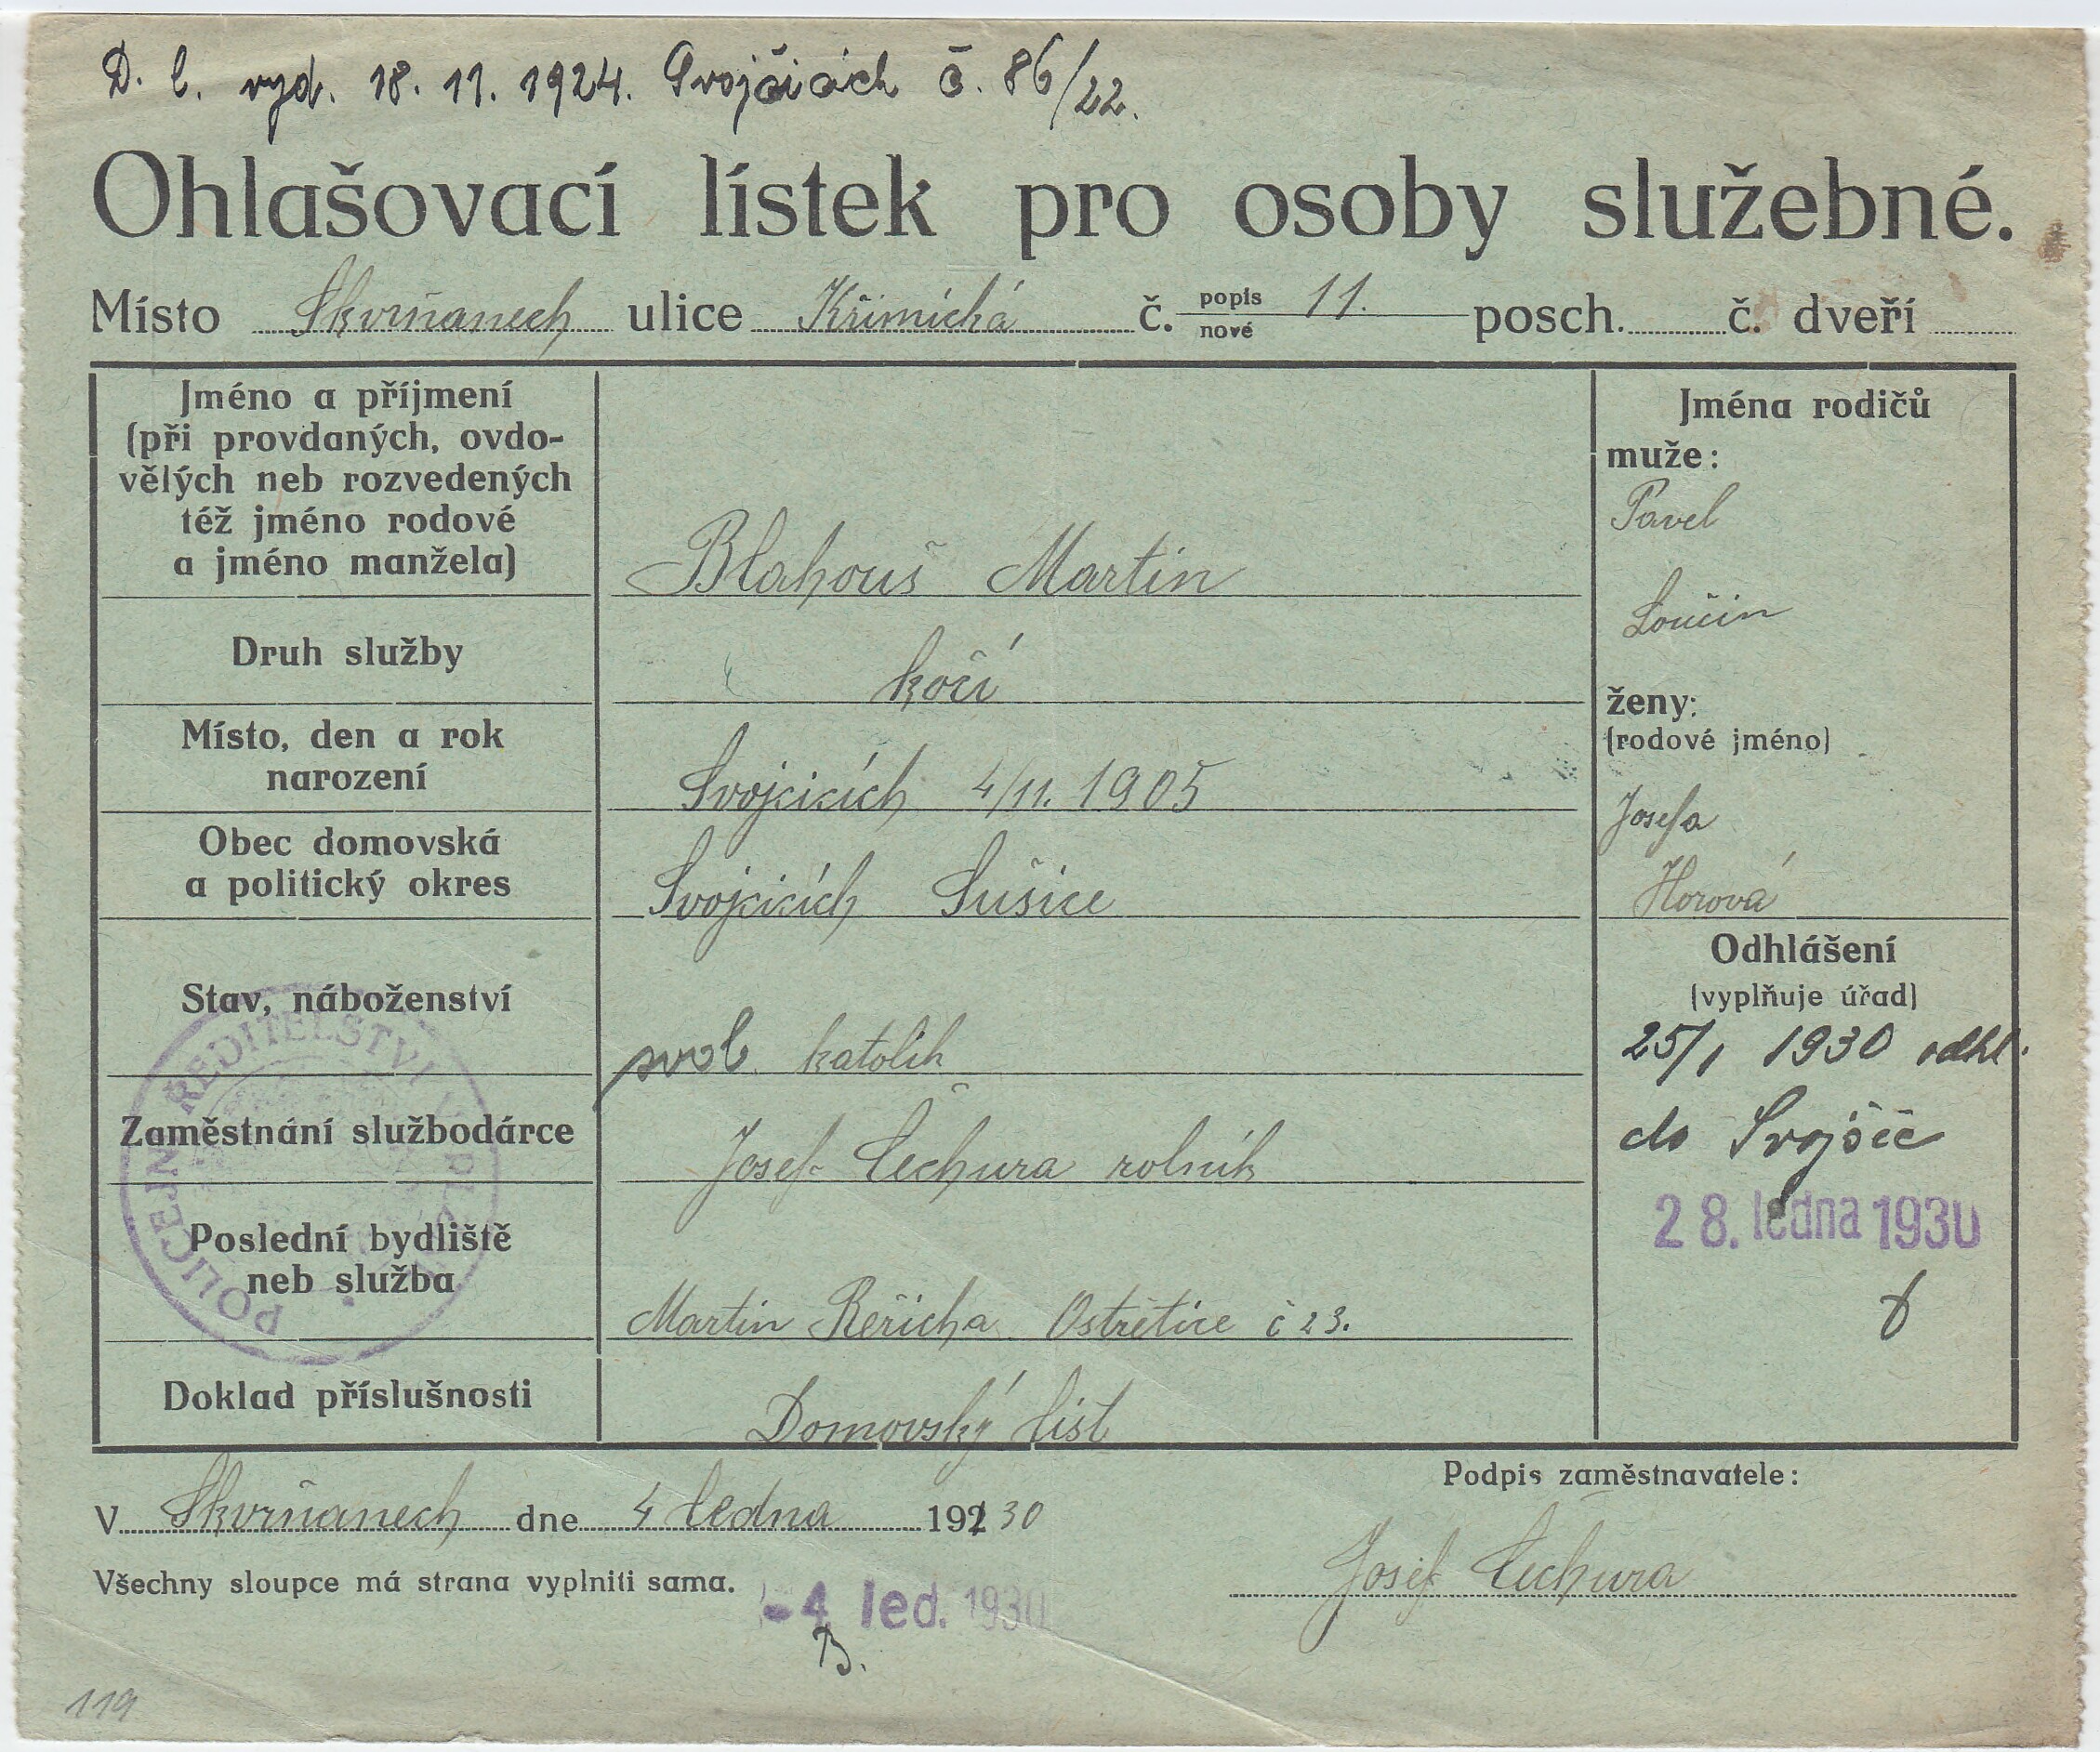 D. l. vyd. 18. 11. 1924. Svojčicích č. 86/22.
Ohlašovací lístek pro osoby služebné.
Místo Skvrňanech ulice Křimická č. popis nové 11. posch. č. dveří
Jméno a příjmení
(při provdaných, ovdo-
vělých neb rozvedených
též jméno rodové
a jméno manžela)
Blahouš Martin
Druh služby
kočí
Místo, den a rok
narození
Svojcicích 4/11. 1905
Obec domovská
a politický okres
Svojcicích Sušice
Stav, náboženství
svob. katolik
Zaměstnání službodárce
Josef Čechura rolník
Poslední bydliště
neb služba
Martin Řeřicha Ostřetice č 23.
Doklad příslušnosti
Domovský list
Jména rodičů
muže:
Pavel
Loučin
ženy:
(rodové jméno)
Josefa
Horová
Odhlášení
(vyplňuje úřad)
25/1 1930 odhl.
do Svojšic
28. ledna 1930
POLICEJNÍ ŘEDITELSTVÍ V PLZNI
V Skvrňanech dne 4 ledna 192 30
Podpis zaměstnavatele:
Josef Čechura
Všechny sloupce má strana vyplniti sama.
- 4. led. 1930
B.
119